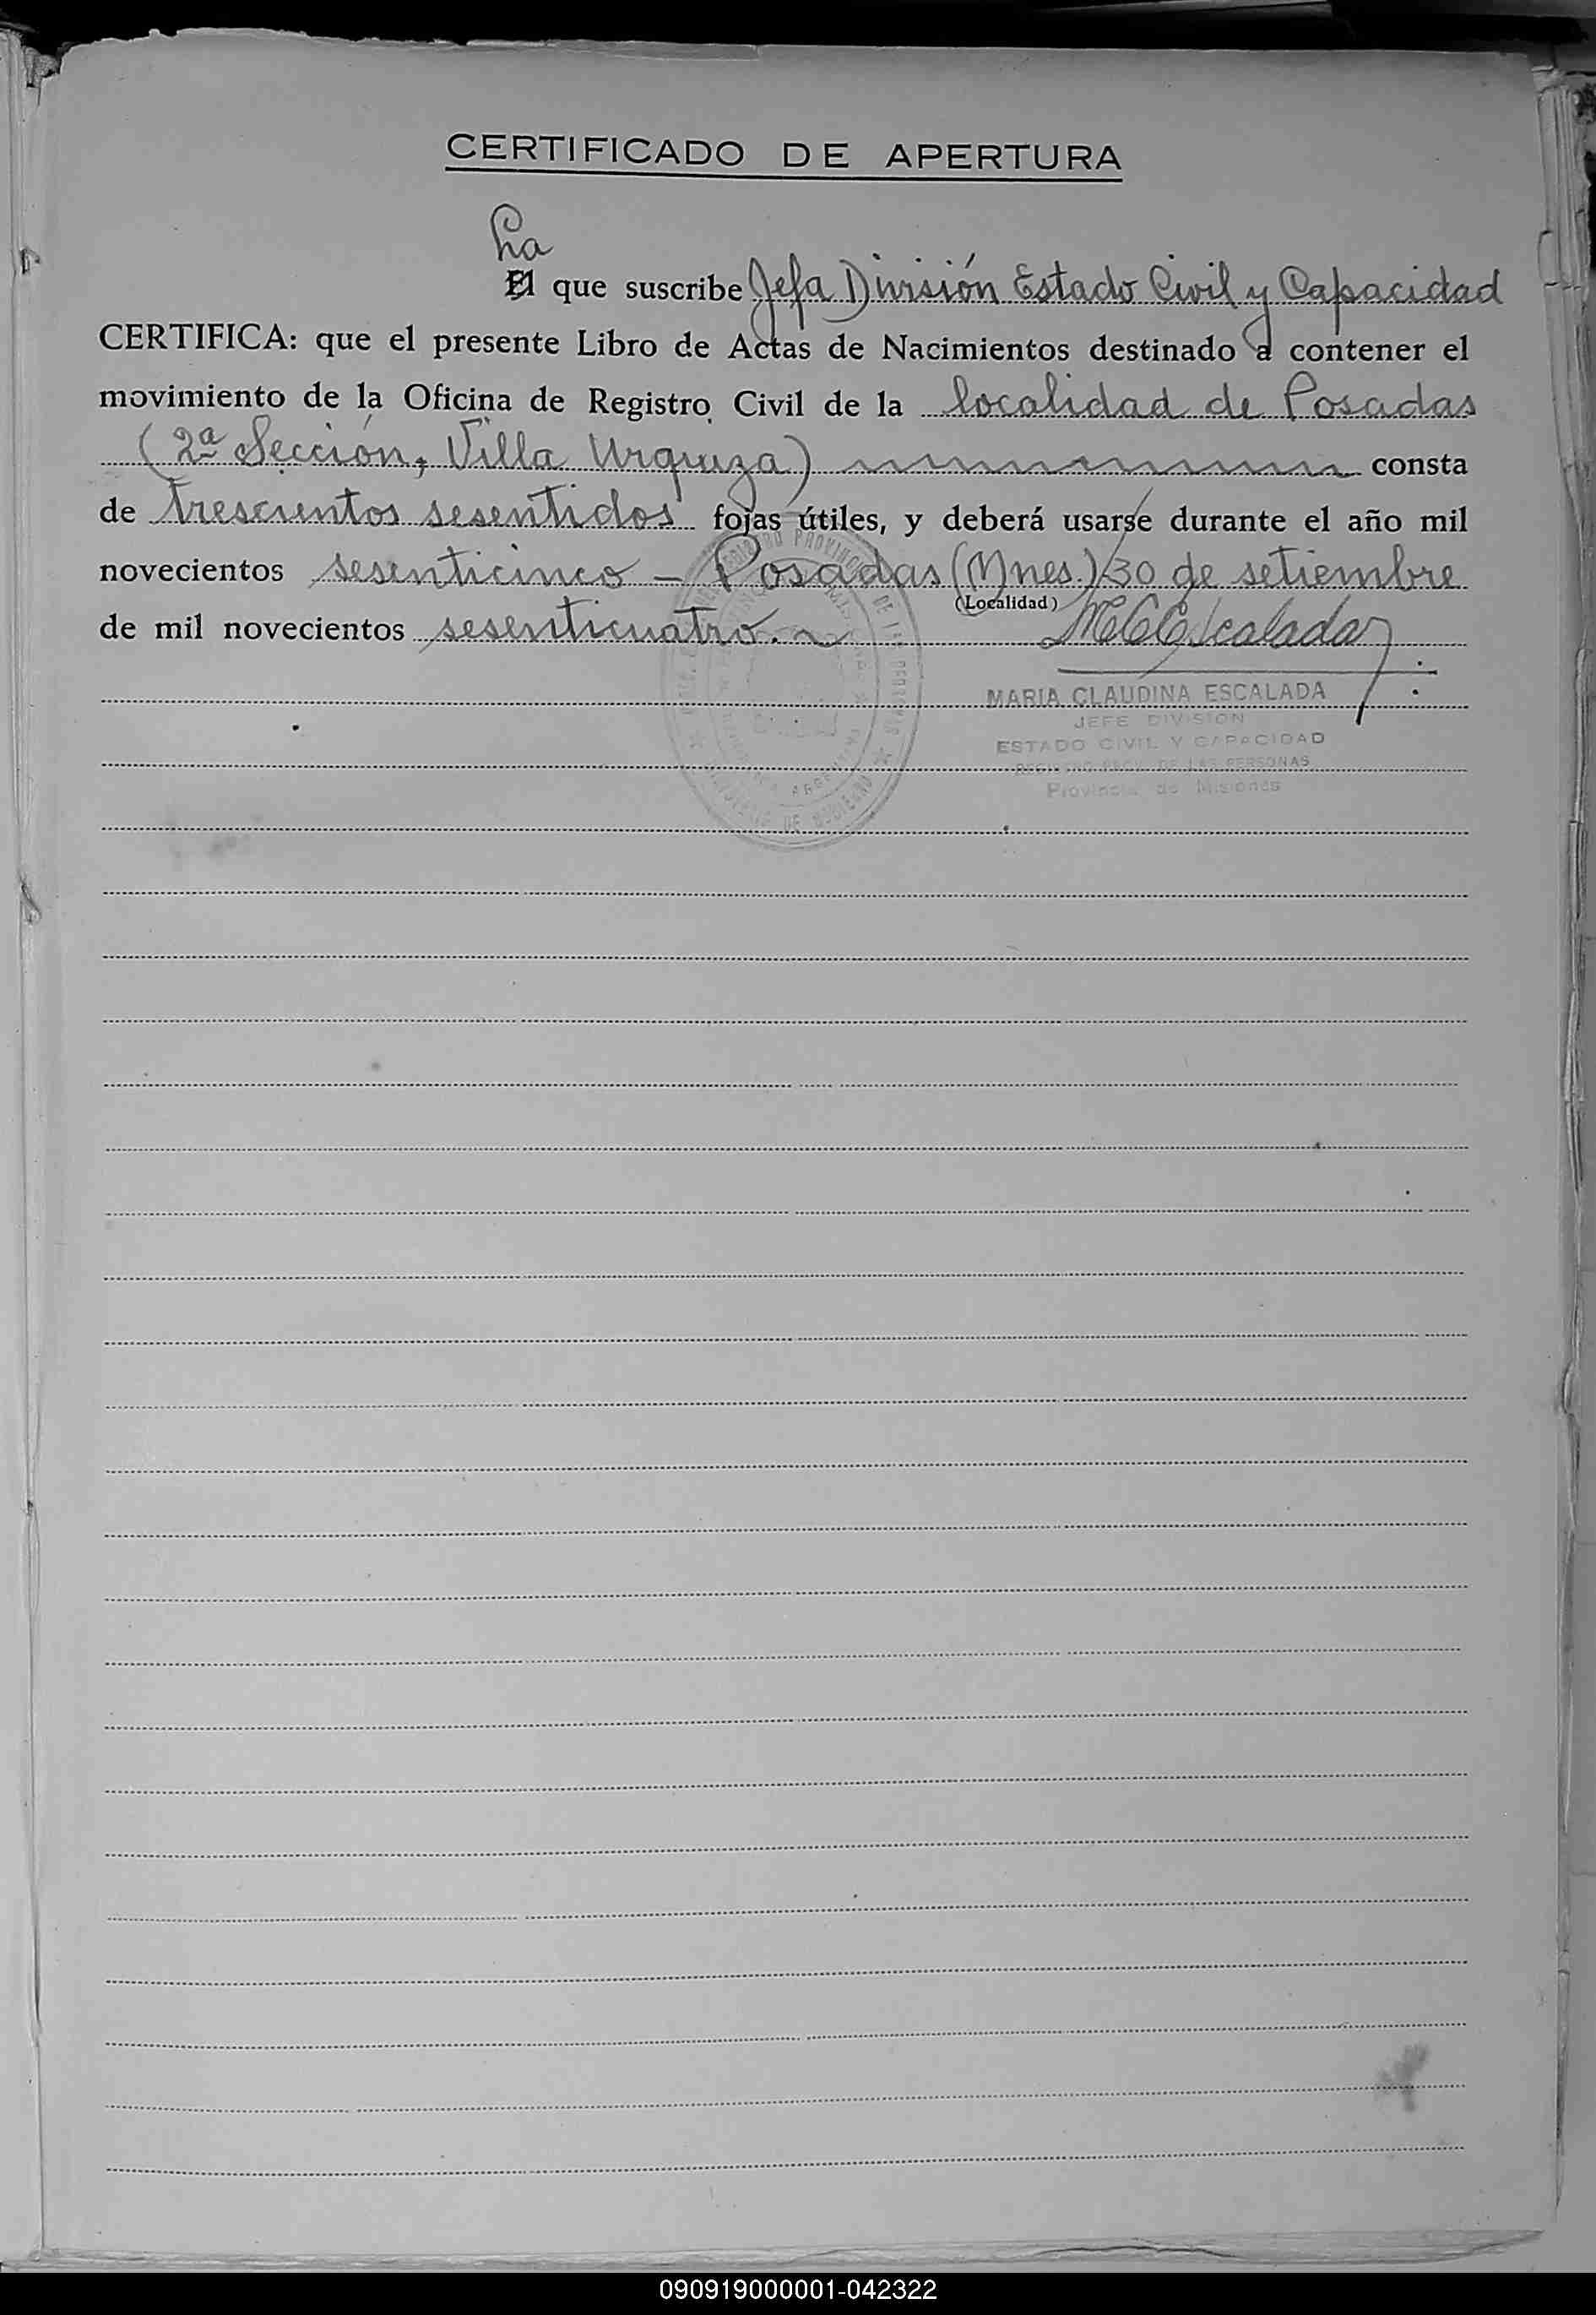 CERTIFICADO DE APERTURA
La
El que suscribe Jefa División Estado Civil y Capacidad
CERTIFICA: que el presente Libro de Actas de Nacimientos destinado a contener el
movimiento de la Oficina de Registro Civil de la localidad de Posadas
(2ª Sección, Villa Urquiza) consta
de trescientos sesentidos fojas útiles, y deberá usarse durante el año mil
novecientos sesenticinco - Posadas (Mnes.) 30 de setiembre
(Localidad)
de mil novecientos sesenticuatro.
MCEscalada
MARIA CLAUDINA ESCALADA
JEFE DIVISION
ESTADO CIVIL Y CAPACIDAD
REGISTRO PROV. DE LAS PERSONAS
Provincia de Misiones
REGISTRO PROVINCIAL DE LAS PERSONAS
MINISTERIO DE GOBIERNO
090919000001-042322